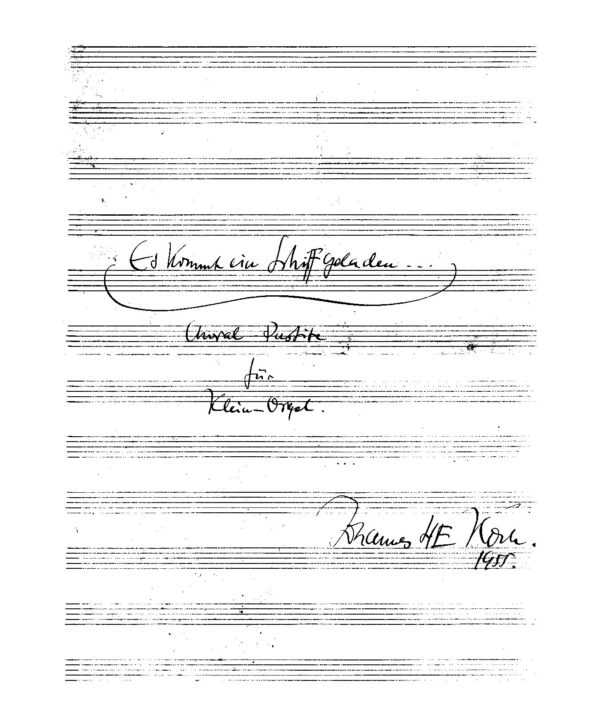 Es kommt ein Schiff geladen...
Choral Partita
für
Klein-Orgel.
Johannes HE Koch.
1955.